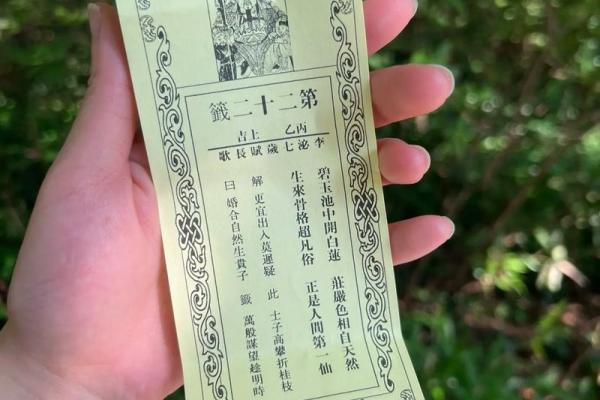 第二十二籤
丙乙 上吉
李泌七歲賦長歌
碧玉池中開白蓮 莊嚴色相自天然
生來骨格超凡俗 正是人間第一仙
解 更宜出入莫遲疑 此 士子高攀折桂枝
曰 婚合自然生貴子 籤 萬般謀望趁明時